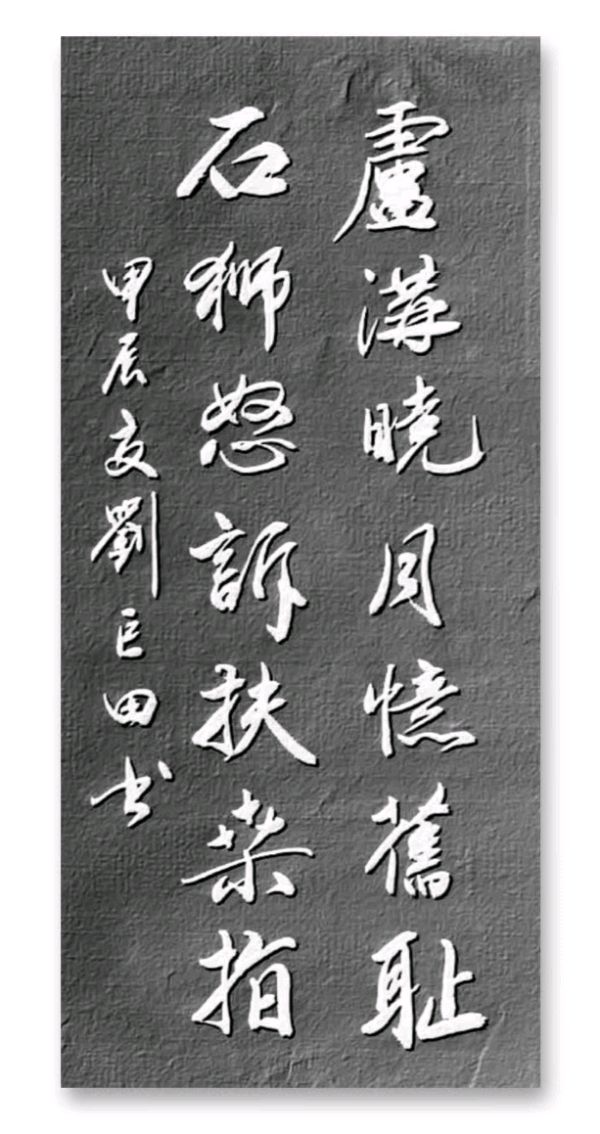 盧溝曉月憶舊耻
石獅怒訴扶桑指
甲辰夏劉巨田书